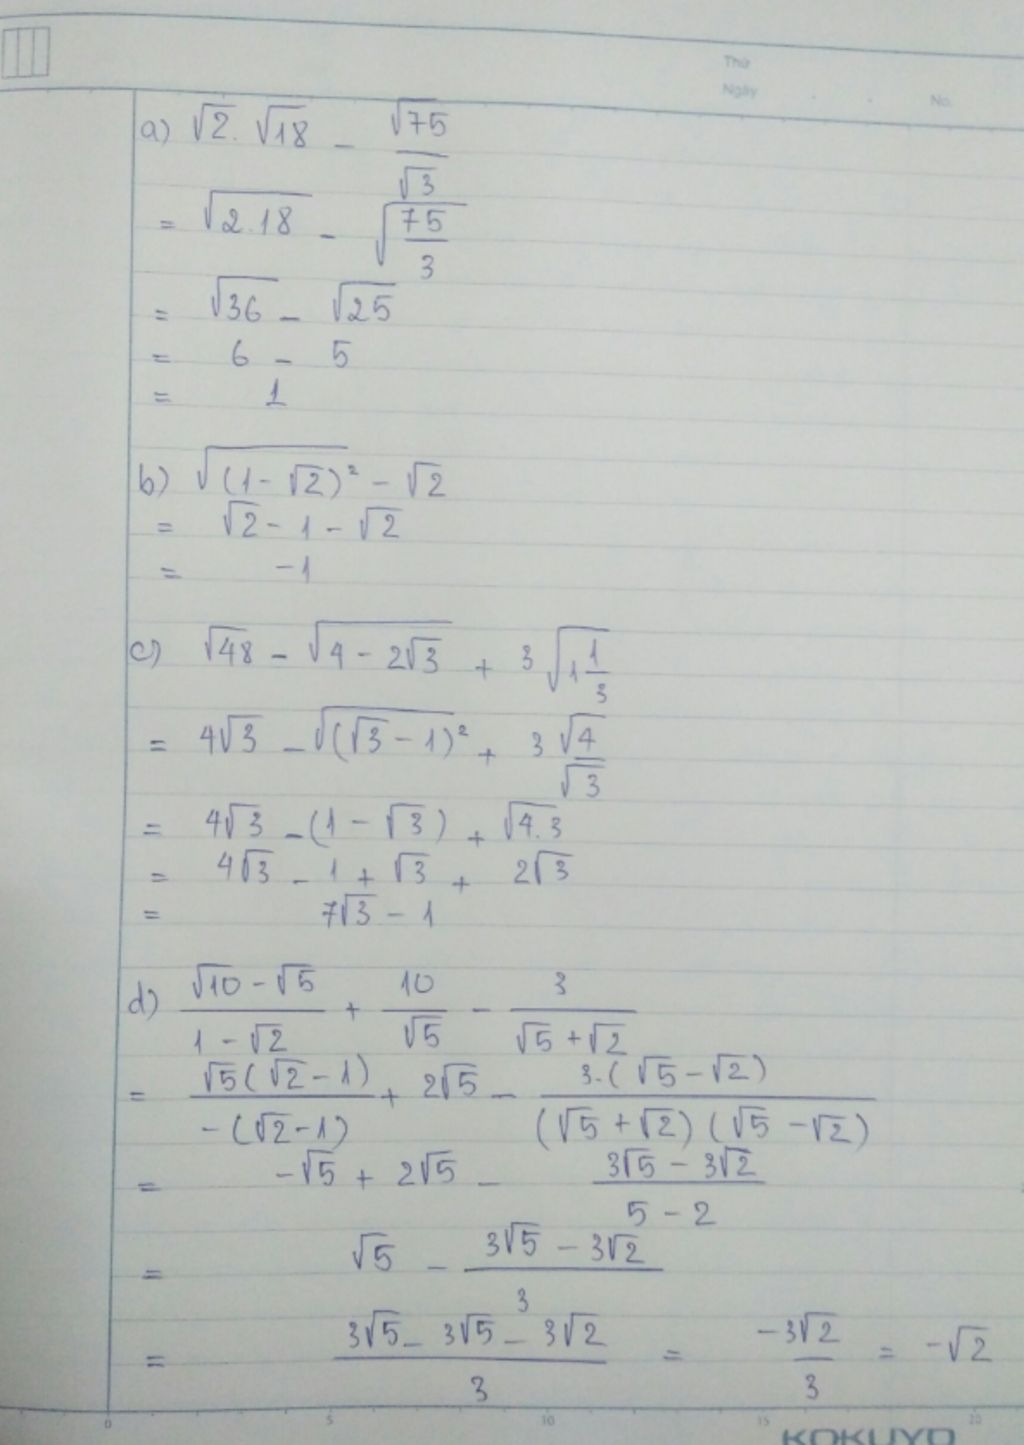 Thứ
Ngày . . No.
a) √2. √18 - √75/√3
= √(2.18) - √(75/3)
= √36 - √25
= 6 - 5
= 1
b) √((1-√2)²) - √2
= √2 - 1 - √2
= -1
c) √48 - √(4 - 2√3) + 3√(1 1/3)
= 4√3 - √((√3 - 1)²) + 3 √4/√3
= 4√3 - (1 - √3) + √(4.3)
= 4√3 - 1 + √3 + 2√3
= 7√3 - 1
d) (√10 - √5)/(1 - √2) + 10/√5 - 3/(√5 + √2)
= √5(√2 - 1)/-(√2-1) + 2√5 - 3.(√5 - √2)/(√5 + √2)(√5 - √2)
= -√5 + 2√5 - (3√5 - 3√2)/(5 - 2)
= √5 - (3√5 - 3√2)/3
= (3√5 - 3√5 - 3√2)/3 = -3√2/3 = -√2
0 5 10 15 20
KOKUYO